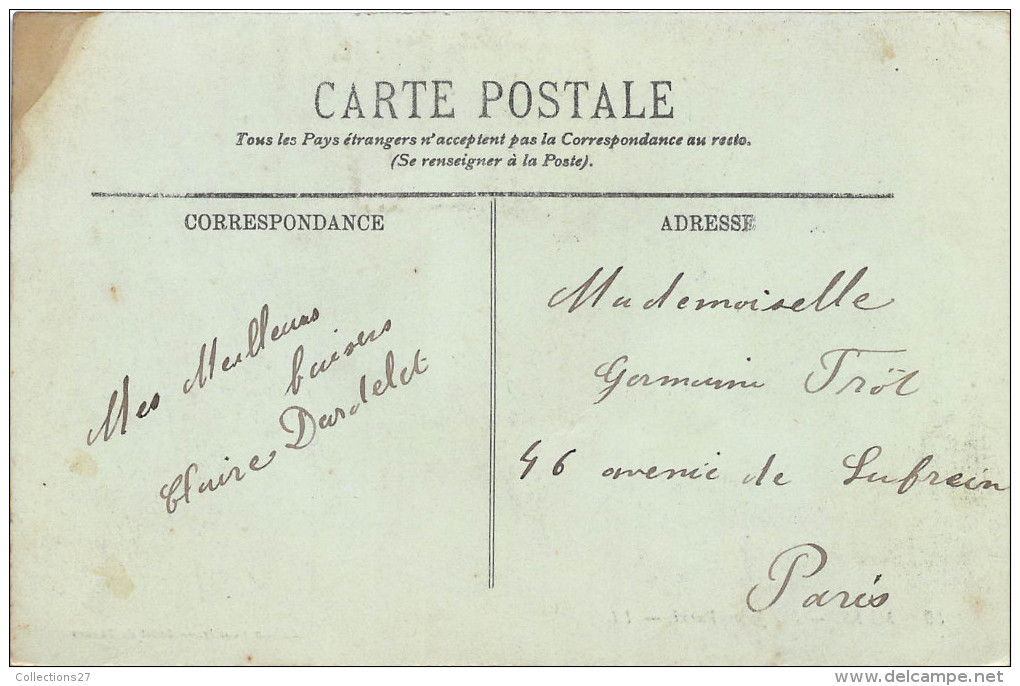 CARTE POSTALE
Tous les Pays étrangers n'acceptent pas la Correspondance au recto.
(Se renseigner à la Poste).
CORRESPONDANCE
Mes Meilleurs
baisers
Claire Dardelot
ADRESSE
Mademoiselle
Germaine Tröt
46 avenie de Sufrein
Paris
Collections27
delcampe.net